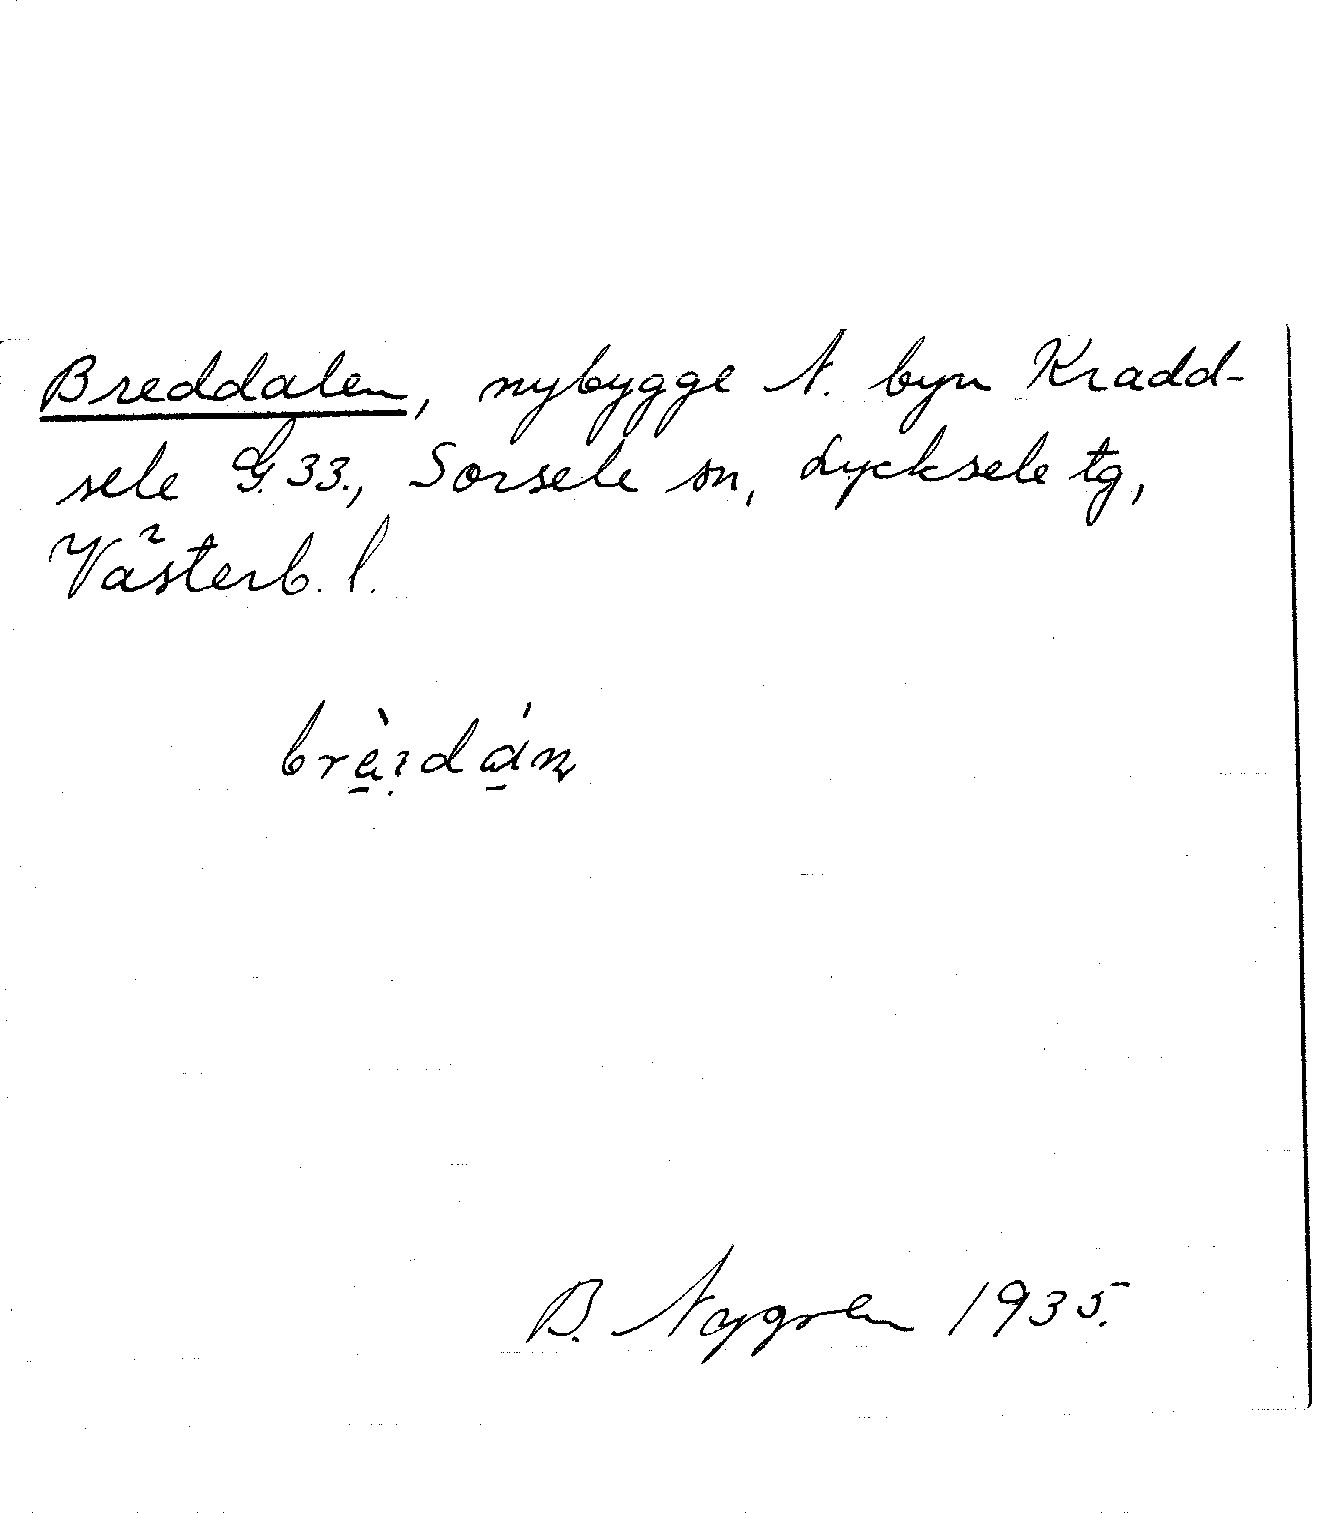 Breddalen, nybygge N. byn Kradd-
sele G.33., Sorsele sn, Lycksele tg,
Västerb. l.
B. Nygren 1935.